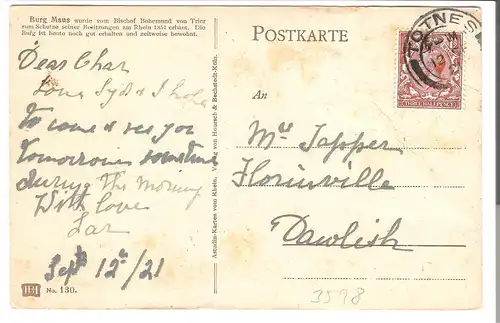 Burg Maus wurde vom Bischof Bohemund von Trier
zum Schutze seiner Besitzungen am Rhein 1351 erbaut. Die
Burg ist heute noch gut erhalten und zeitweise bewohnt.
POSTKARTE
TOTNES
12
THREE HALFPENCE
Dear Char
Syd & I hope
To come & see you
tomorrow sometime
during the morning
With love
Sept 12th/21
An
Mrs Tapper
Florinville
Dawlish
3598
No. 130.
Astudin-Karten vom Rhein. Verlag von Hoursch & Bechstedt-Köln.